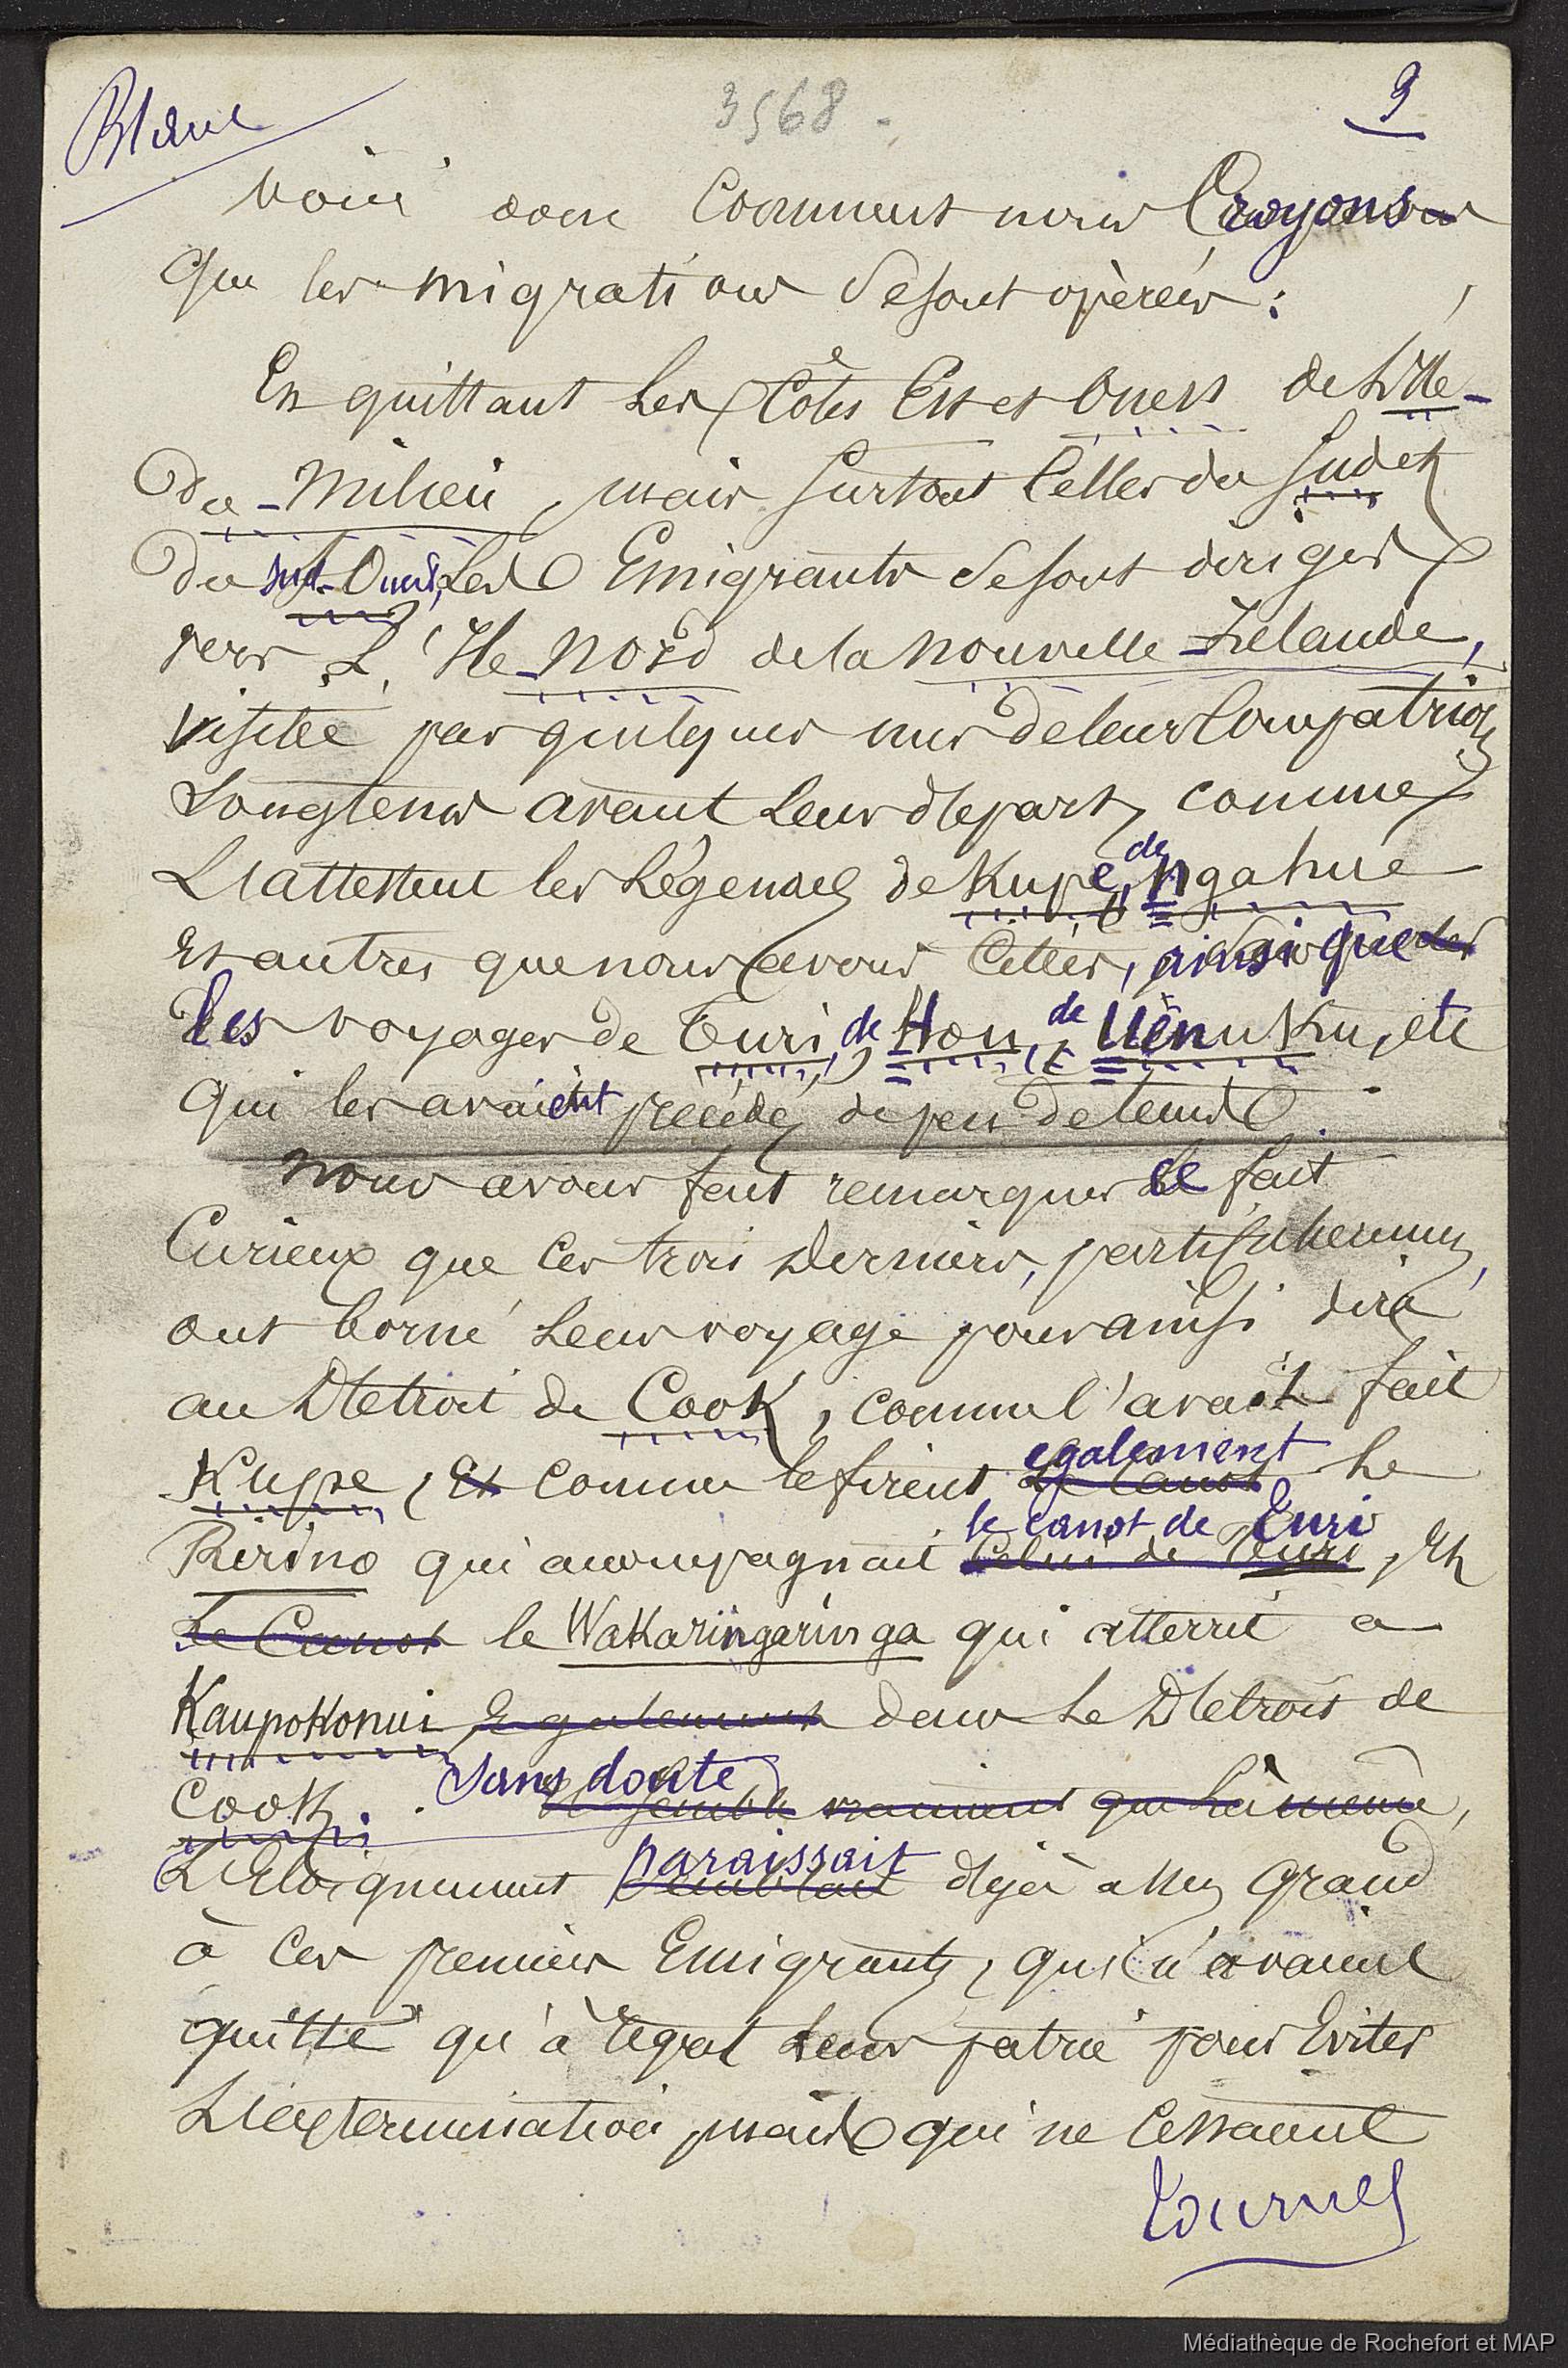 Blanc
3568.
9
Voici donc comment nous Croyons
que les migrations se sont opèrées :
En quittant les Côtes Est et Ouest de l'Ile-
du-Milieu, mais surtout Celles du Sud et
du sud-Ouest, les Emigrants se sont dirigés
vers L'Ile-Nord de la Nouvelle-Zelande,
visitée par quelques uns de leurs Compatriotes
Longtems avant leur départ, comme
L'attestent les Légendes de Kupe, de Ngahue
et autres que nous avons Citées, ainsi que
les voyages de Turi, de Hou, de Uenuku, etc
qui les avaient précédés de peu de tems.
Nous avons fait remarquer ce fait
Curieux que Ces trois derniers, particulièrement,
ont borné leur voyage pour ainsi dire
au Détroit de Cook, comme l'avait fait
Kupe, Et comme le firent également le
le canot de Turi
Ririno qui accompagnait Celui de Turi, Et
Le Canot le Wakaringaringa qui atterrit a
Kaupokonui Egalement dans le Détroit de
Cook. Sans doute
Il semble vraiment que là même,
L'Eloignement paraissait déjà assez grand
à Ces premiers Emigrants, qui n'avaient
quitté qu'à regret leur patrie pour Eviter
L'extermination, mais qui ne Cessaient
tournez
Médiathèque de Rochefort et MAP